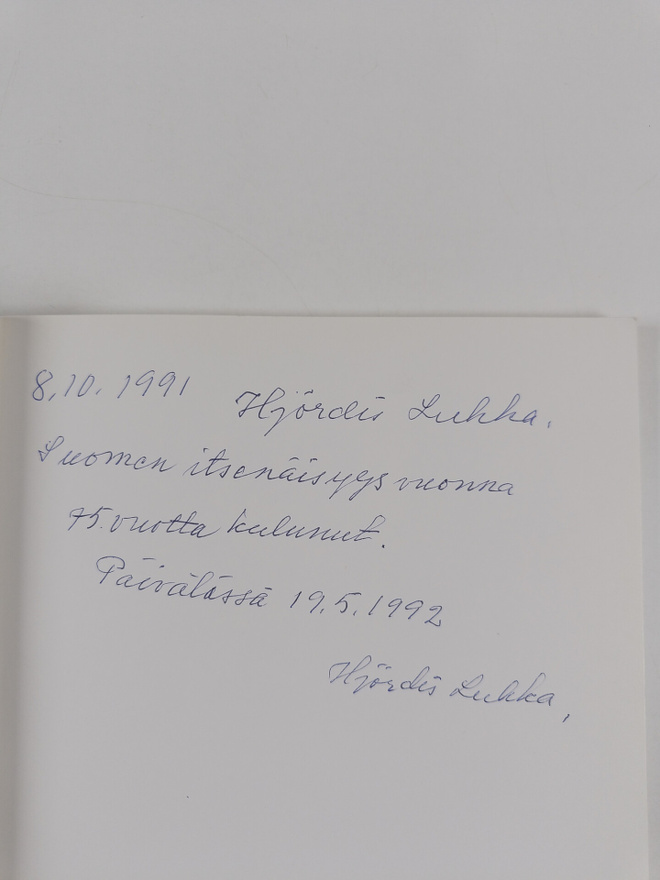 8.10. 1991 Hjördis Lukka.
Suomen itsenäisyys vuonna
75. vuotta kulunut.
Päivälässä 19.5.1992
Hjördis Lukka,